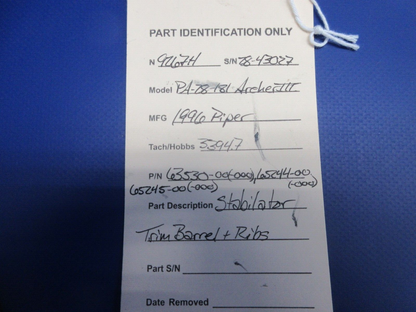 PART IDENTIFICATION ONLY
N 9267H S/N 28-43027
Model PA-28-181 Archer III
MFG 1996 Piper
Tach/Hobbs 3394.7
P/N 63530-00(-000), 65244-00
65245-00(-000) (-000)
Part Description Stabilator
Trim Barrel + Ribs
Part S/N
Date Removed